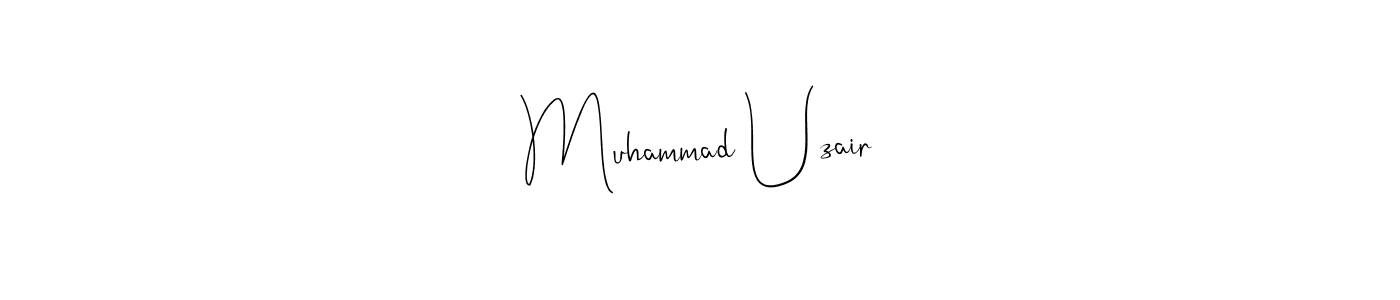 Muhammad Uzair